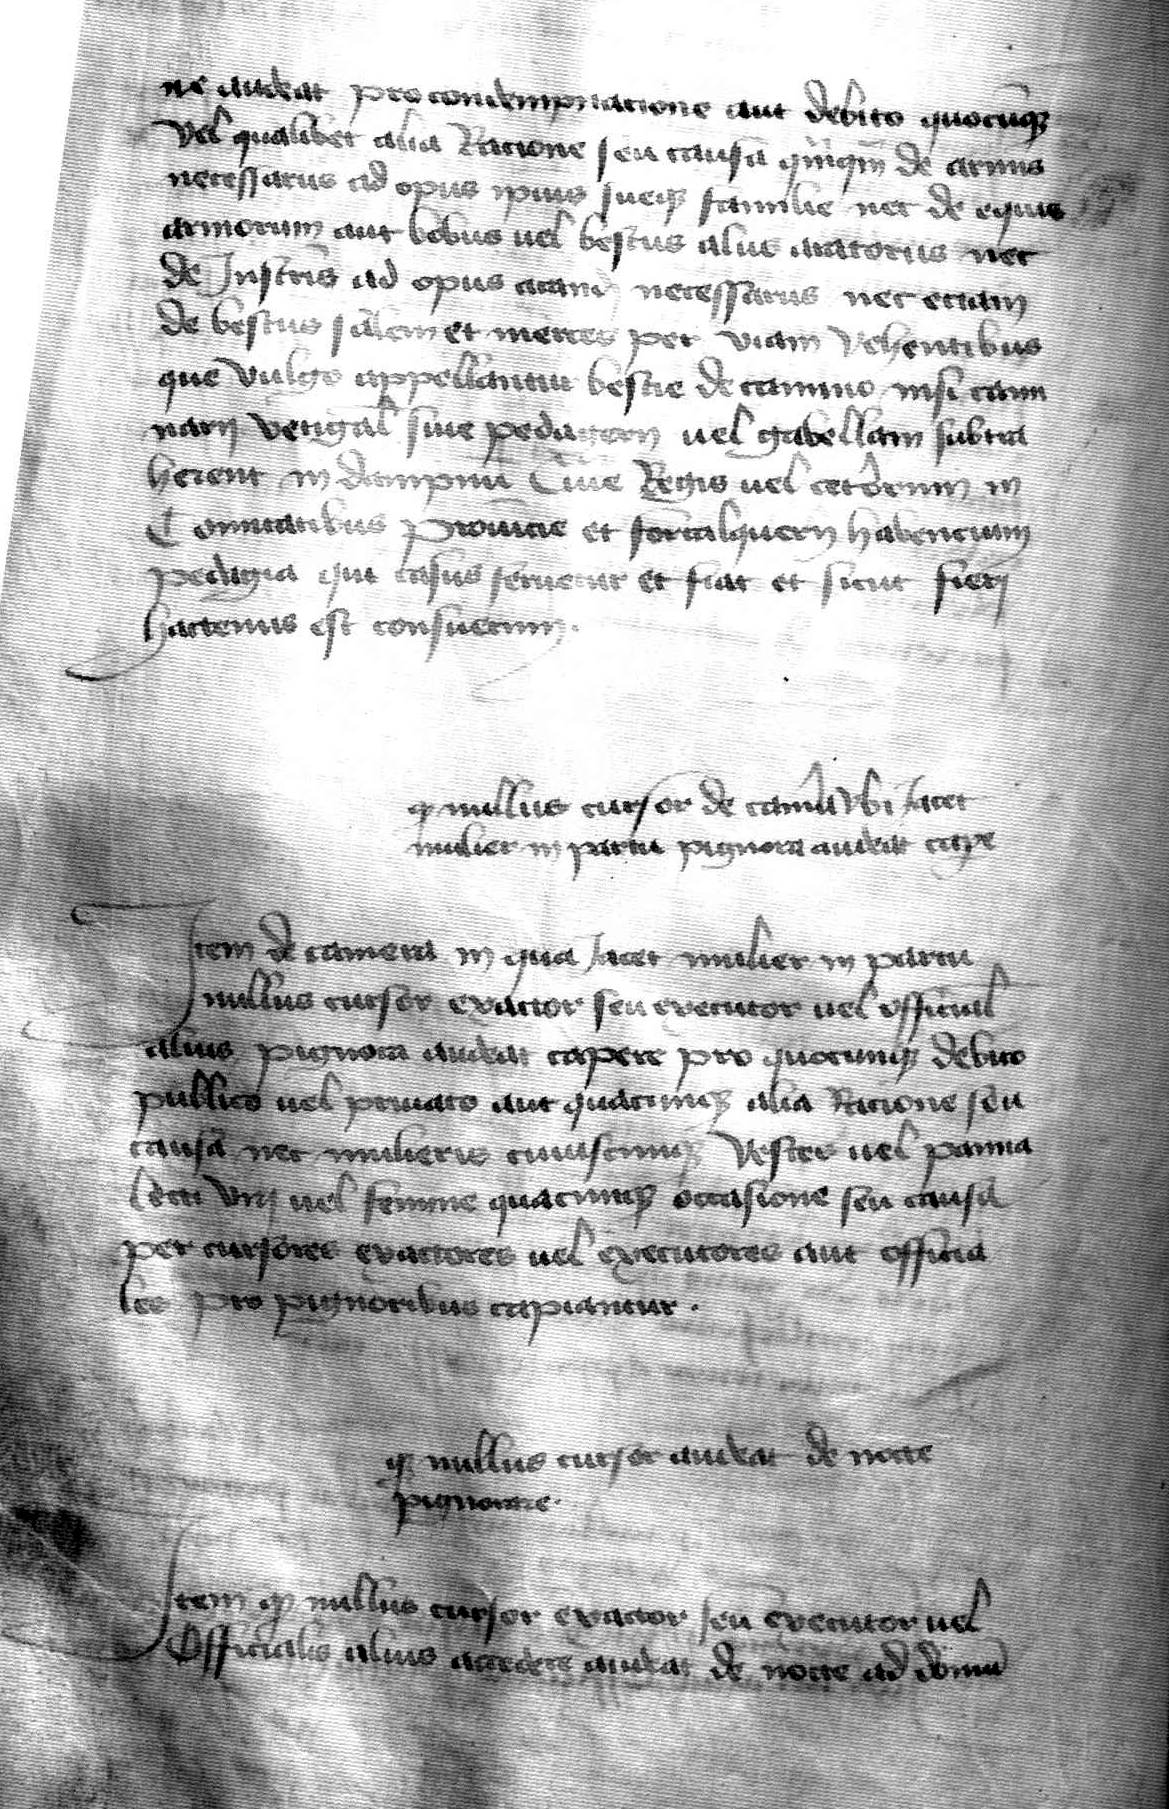 ne audeat pro condempnacione aut debito quocumq3
vel qualibet alia Racione seu causa de armis
necessariis ad opus ipsius sueq3 familie nec de equis
armorum aut bobus uel bestiis aliis aratoriis nec
de Instr̄is ad opus arandi necessariis nec etiam
de bestiis salem et merces per viam Vehentibus
que vulgo appellantur bestie de camino nisi cami
narij vetigal siue pedagium uel gabellam subtra
herent in dampnu Curie Regis uel ceterorum in
Comitatibus prouincie et forcalquerij habencium
pedagia casus seruetur et fiat et sicut fieri
hactenus est consuetum.
q nullus cursor de cam̄a vbi Iacet
mulier in partu pignora audeat cape
Item de camera in qua Iacet mulier in partu
nullus cursor exactor seu executor uel official
alius pignora audeat capere pro quocumq3 debito
publico uel priuato aut quacumq3 alia Racione seu
causa nec mulieris cuiuscumq3 Vestes uel panna
lecti viri uel femine quacumq3 occasione seu causa
per cursores exactores uel executores aut officia
les pro pignoribus capiantur .
q nullus cursor audeat de nocte
pignorare.
Item q nullus cursor exactor seu executor uel
Officialis alius accedere audeat de nocte ad domū